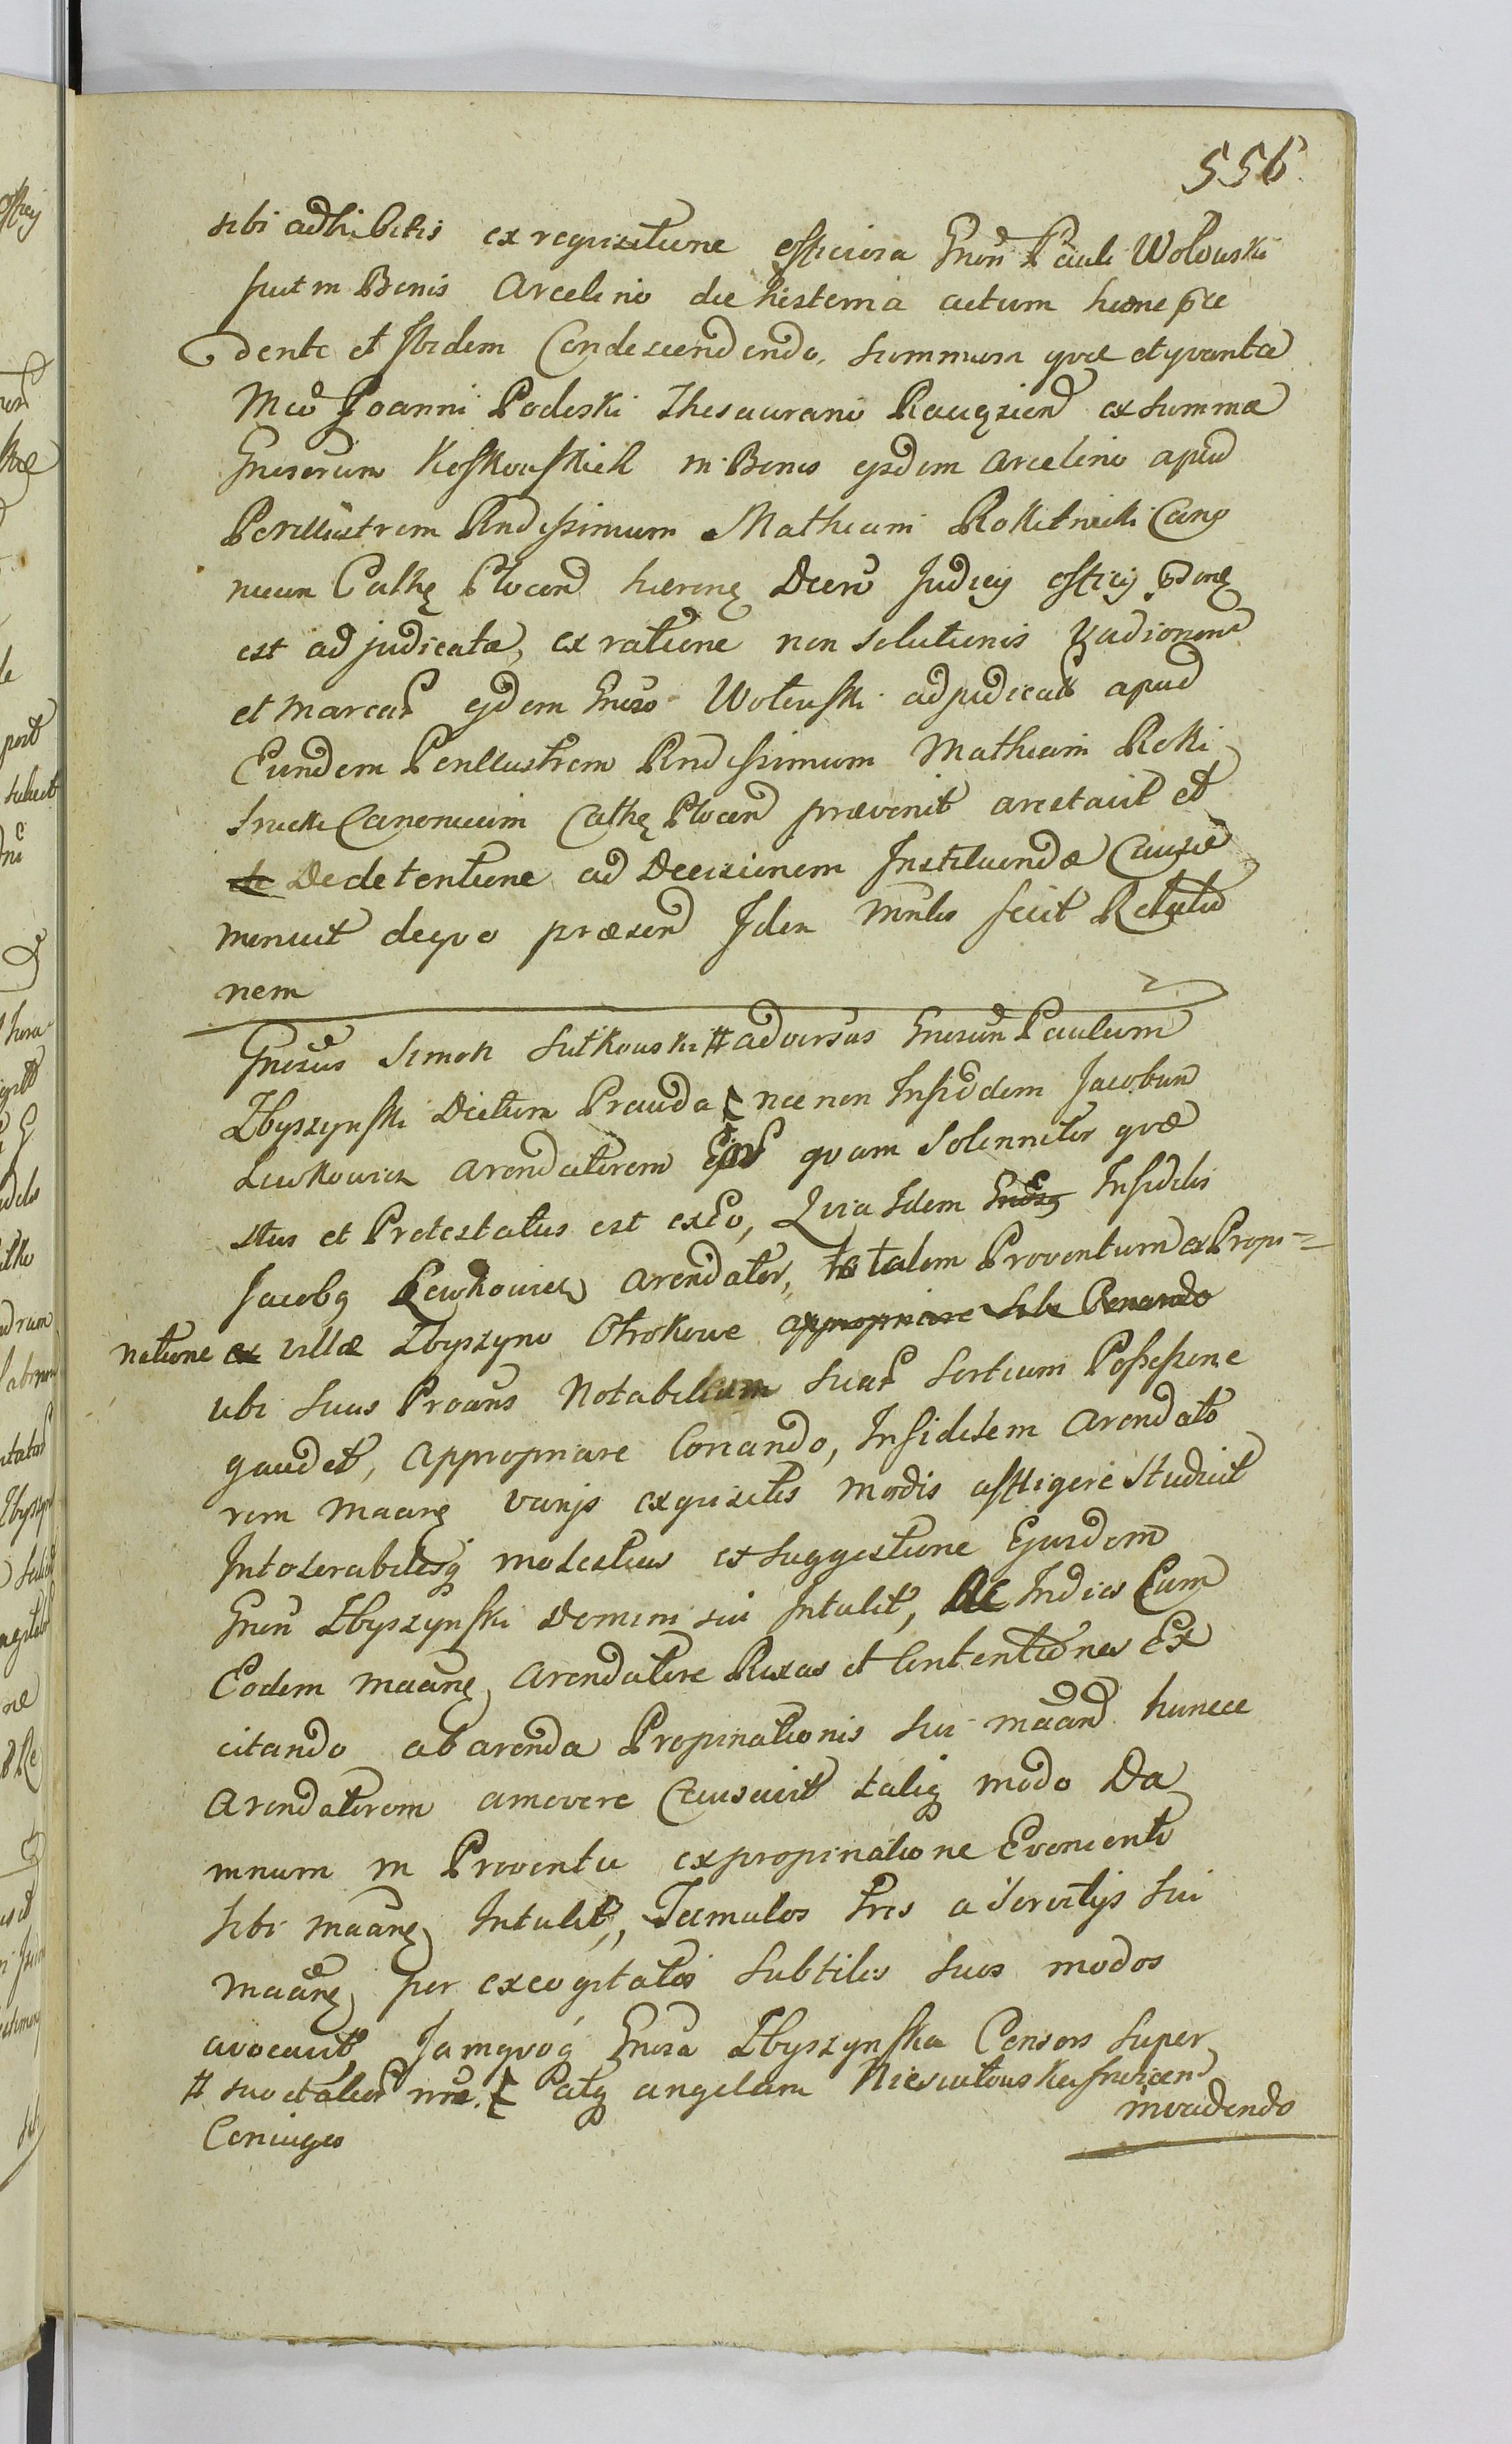 556.
sibi adhibitis ex requisitione officiosa Gnōn Pauli Wolouski
fuit in Bonis Arcelino die hesterna actum hicne prae
dente et Ibidem Condescendendo, summam quae et quanta
Mco Joanni Podoski Thesaurario Raciąziend ex summa
Gnosorum Koskouskich in Bonis ejsdem Arcelino apud
Perillustrem Rndissimum Mathiam Rokitnicki Cano
nicum Cathę Plocend Decro Judicij officij
est adjudicata, ex ratione non solutionis Vadiorum
et marcar ejdem Gnoso Wolouski adjudicat apud
Eundem Perillustrem Rndissimum Mathiam Roki
tnicki Canonicum Cathę Plocen praevenit arestavit et
de Dedetentione ad Decisionem Instituendae Causae
monuit deqvo praesend Iden Mnlis fecit Relatio
nem
Gnosus Simon Sutkouski # adversus Gnosum Paulum
Zbyszynski Dictum Prawda ξ nec non Infidelem Jacobum
Lewkowicz Arendatorem Ejus quam Solenniter quae
stus et Protestatus est ex eo, Quia Idem Gnosg Infidelis
Jacobg Lewkowicz Arendator, totalem Proventum ex Propi=
natione ex villae Zbyszyno Otrokowe appropriare sibi Conando
ubi suus Proans Notabilium suar Sortium Possessione
gaudet, appropriare Conando, Infidelem Arendato
rem Maanę varijs exquisitis modis affligere Studuit
Intolerabilesq molestias ex suggestione Ejusdem
Gnōn Zbyszynski Domini sui Intulit, Ac Indies Cum
Eodem Maanę Arendatore Rixas et Contentiones Ex
citando ab arenda Propinationis sui maand hunce
Arendatorem amovere Causavit taliq modo Da
mnum in Proventu ex propinatione Eveniente
sibi Maanę Intulit, Famulos Tres a Servitijs sui
Maanę per excogitatos Subtiles suos modos
avocavit, Jamqvoq Gnosa Zbyszynska Consors super
# suo et alior nne. ξ atq angelam
Coniuges
invadendo